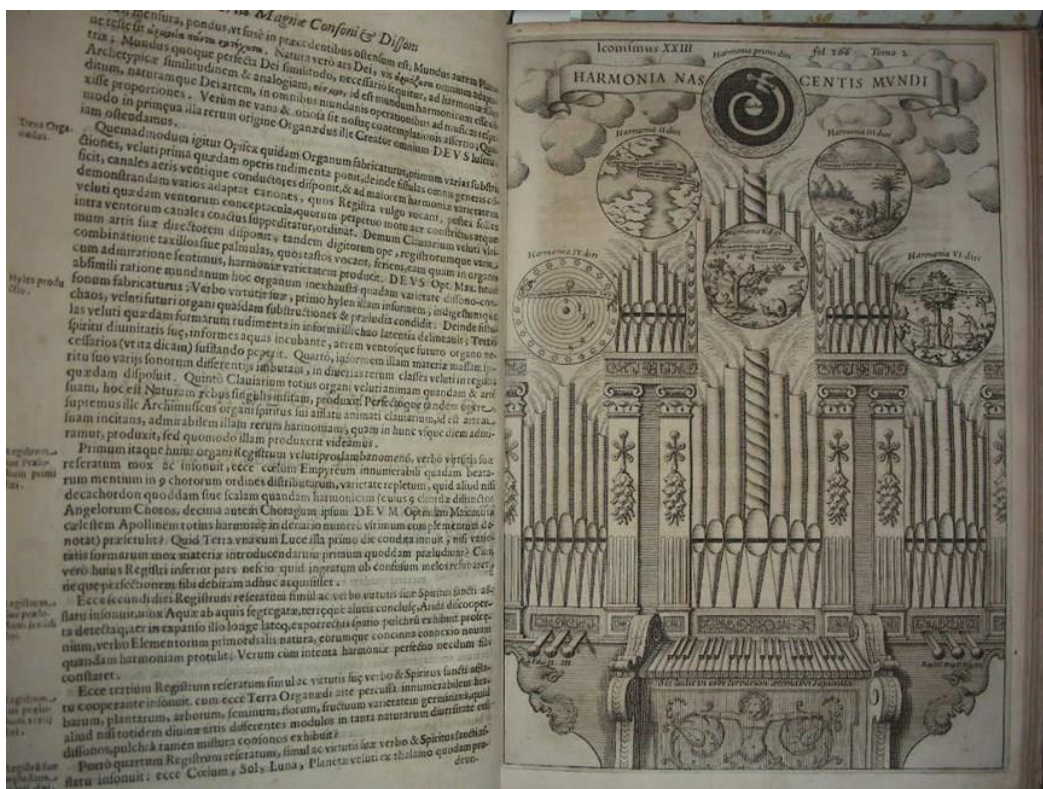 Magnæ Consoni & Dissoni
mensura, pondus, vt fusè in præcedentibus ostensum est; Mundus autem
Natura verò ars Dei, vis omnium
trix; Mundus quoque perfecta Dei similitudo, necessario sequitur, ad harmoniæ
Archetypicæ similitudinem & analogiam, id est mundum harmonicum esse
ditum, naturamque Dei artem, in omnibus mundanis operationibus ad musicas
xisse proportiones. Verùm ne vana & otiosa sit nostræ contemplationis assertio;
modo in primæua illa rerum origine Organædus ille Creator omnium DEVS luserit
iam ostendamus.
Deus Orga-
nædus.
Quemadmodum igitur Opifex quidam Organum fabricaturus, primum varias substru-
ctiones, veluti prima quædam operis rudimenta ponit, deinde fistulas omnis generis
ficit, canales aeris ventique conductores disponit, & ad maiorem harmoniæ varietatem
demonstrandam varios adaptat canones, quos Registra vulgo vocant, postea folles
veluti quædam ventorum conceptacula, quorum perpetuo motu aer constrictus atque
intra ventorum canales coactus suppeditatur, ordinat. Demum Clauiarium veluti
mum artis suæ directorem disponit; tandem digitorum ope, registrorumque varia
combinatione taxillos siue palmulas, quos tastos vocant, feriens, eam quam in organo
cum admiratione sentimus, harmoniæ varietatem producit. DEVS Opt. Max. haud
absimili ratione mundanum hoc organum inexhausta quadam varietate dissono-con-
sonum fabricaturus; Verbo virtutis suæ, primo hylen illam informem, indigestumque
Hyles produ
chaos, veluti futuri organi quasdam substructiones & præludia condidit. Deinde fistu-
las veluti quædam formarum rudimenta in informi illo chao latentia delineauit; Tertiò
spiritu diuinitatis suæ, informes aquas incubante, aerem ventosque futuro organo ne-
cessarios (vt ita dicam) sufflando peperit. Quartò, informem illam materiæ massam
ritu suo varijs sonorum differentijs imbutam, in diuersas rerum classes veluti in registra
quædam disposuit. Quintò Clauiarium totius organi veluti animam quandam & artem
suam, hoc est Naturam rebus singulis insitam, produxit; Perfectoque tandem opere
supremus ille Archimusicus organi spiritus sui afflatu animati clauiarium, id est artem
suam incitans, admirabilem illam rerum harmoniam, quam in hunc vsque diem admi-
ramur, produxit, sed quomodo illam produxerit videamus.
Primum itaque huius organi Registrum veluti proslambanomenò, verbo virtutis suæ
reseratum mox ac insonuit, ecce cœlum Empyreum innumerabili quadam beata-
rum mentium in 9 chororum ordines distributarum, varietate repletum, quid aliud nisi
decachordon quoddam siue scalam quandam harmonicam (cuius 9 chordæ distinctos
Angelorum Choros, decima autem Choragum ipsum DEVM Optimum Maximum
cælestem Apollinem totius harmoniæ in denario numero vltimum complementum de-
notat) præsetulit? Quid Terra vna cum Luce illa primo die condita innuit, nisi varie-
tatis formarum mox materiæ introducendarum primum quoddam præludium? Cùm
verò huius Registri inferior pars nescio quid ingratum ob confusum melos resonaret,
neque perfectionem sibi debitam adhuc acquisisset.
Ecce secundi diei Registrum reseratum simul ac verbo virtutis suæ Spiritus sancti af-
flatu insonuit, mox Aquæ ab aquis segregatæ, terræque alueis conclusæ, Arida discooper-
ta detectaq; aer in expanso illo longe lateq; exporrectus spatio pulchrũ exhibuit prosce-
nium, verbo Elementorum primordialis natura, eorumque concinna connexio nouam
quandam harmoniam protulit; Verùm cùm intenta harmoniæ perfectio necdum sibi
constaret.
Ecce tertium Registrum reseratum simul ac virtutis suæ verbo & Spiritus sancti affla-
tu cooperante insonuit. cum ecce Terra Organædi arte percussa innumerabilem her-
barum, plantarum, arborum, seminum, florum, fructuum varietatem germinans, quid
aliud nisi totidem diuinæ artis differentes modulos in tanta naturarum diuersitate etsi
dissonos, pulchrâ tamen mistura consonos exhibuit?
Porrò quartum Registrum reseratum, simul ac virtutis suæ verbo & Spiritus sancti af-
flatu insonuit: ecce Cœlum, Sol, Luna, Planetæ veluti ex thalamo quodam pro-
deun-
Iconismus XXIII
Harmonia primi diei
fol 266 Tomo 2
HARMONIA NASCENTIS MVNDI
Harmonia II diei
Harmonia III diei
Harmonia IV diei
Harmonia V diei
Harmonia VI diei
Sic ludit in orbe terrarum æterna Dei sapientia